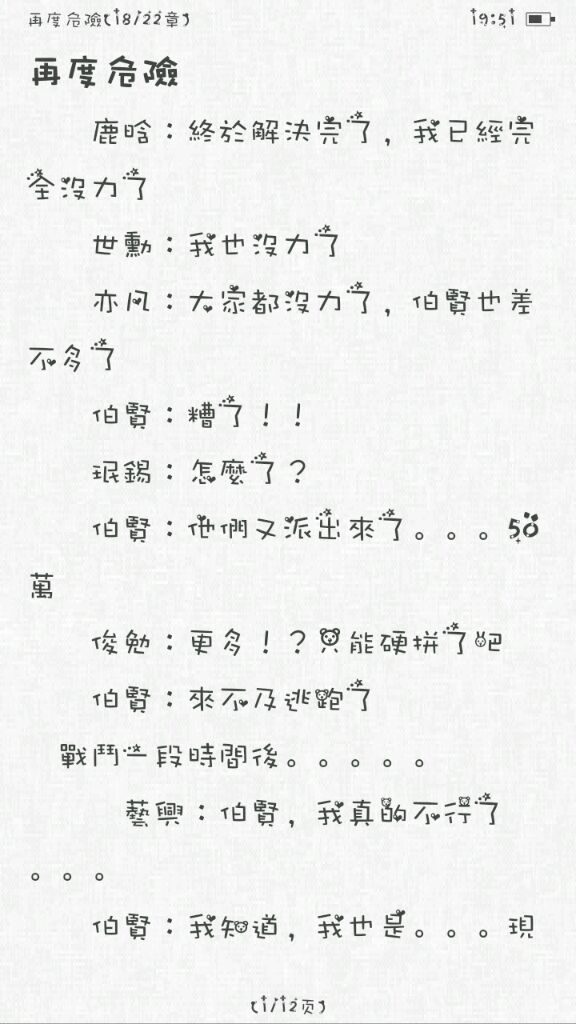 再度危險(18/22章) 19:51
再度危險
鹿晗：終於解決完了，我已經完
全沒力了
世勳：我也沒力了
亦凡：大家都沒力了，伯賢也差
不多了
伯賢：糟了！！
珉錫：怎麼了？
伯賢：他們又派出來了。。。50
萬
俊勉：更多！？只能硬拼了吧
伯賢：來不及逃跑了
戰鬥一段時間後。。。。。
藝興：伯賢，我真的不行了
。。。
伯賢：我知道，我也是。。。現
(1/12页)